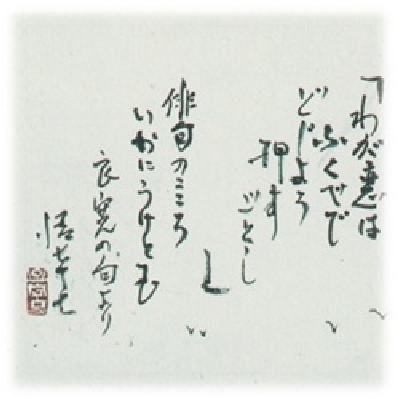 「わが恋は
ふくべで
どじよう
押す
ごとし
」
俳句のこころ
いかにうけとむ
良寛の句より
七十七